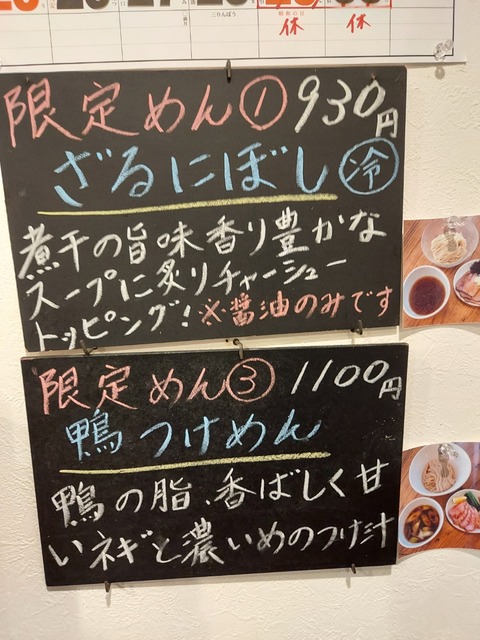 三りんぼう
昭和の日
休
休
限定めん① 930円
ざるにぼし ㊀冷
煮干の旨味香り豊かな
スープに炙りチャーシュー
トッピング!※醤油のみです
限定めん③ 1100円
鴨つけめん
鴨の脂、香ばしく甘
いネギと濃いめのつけ汁